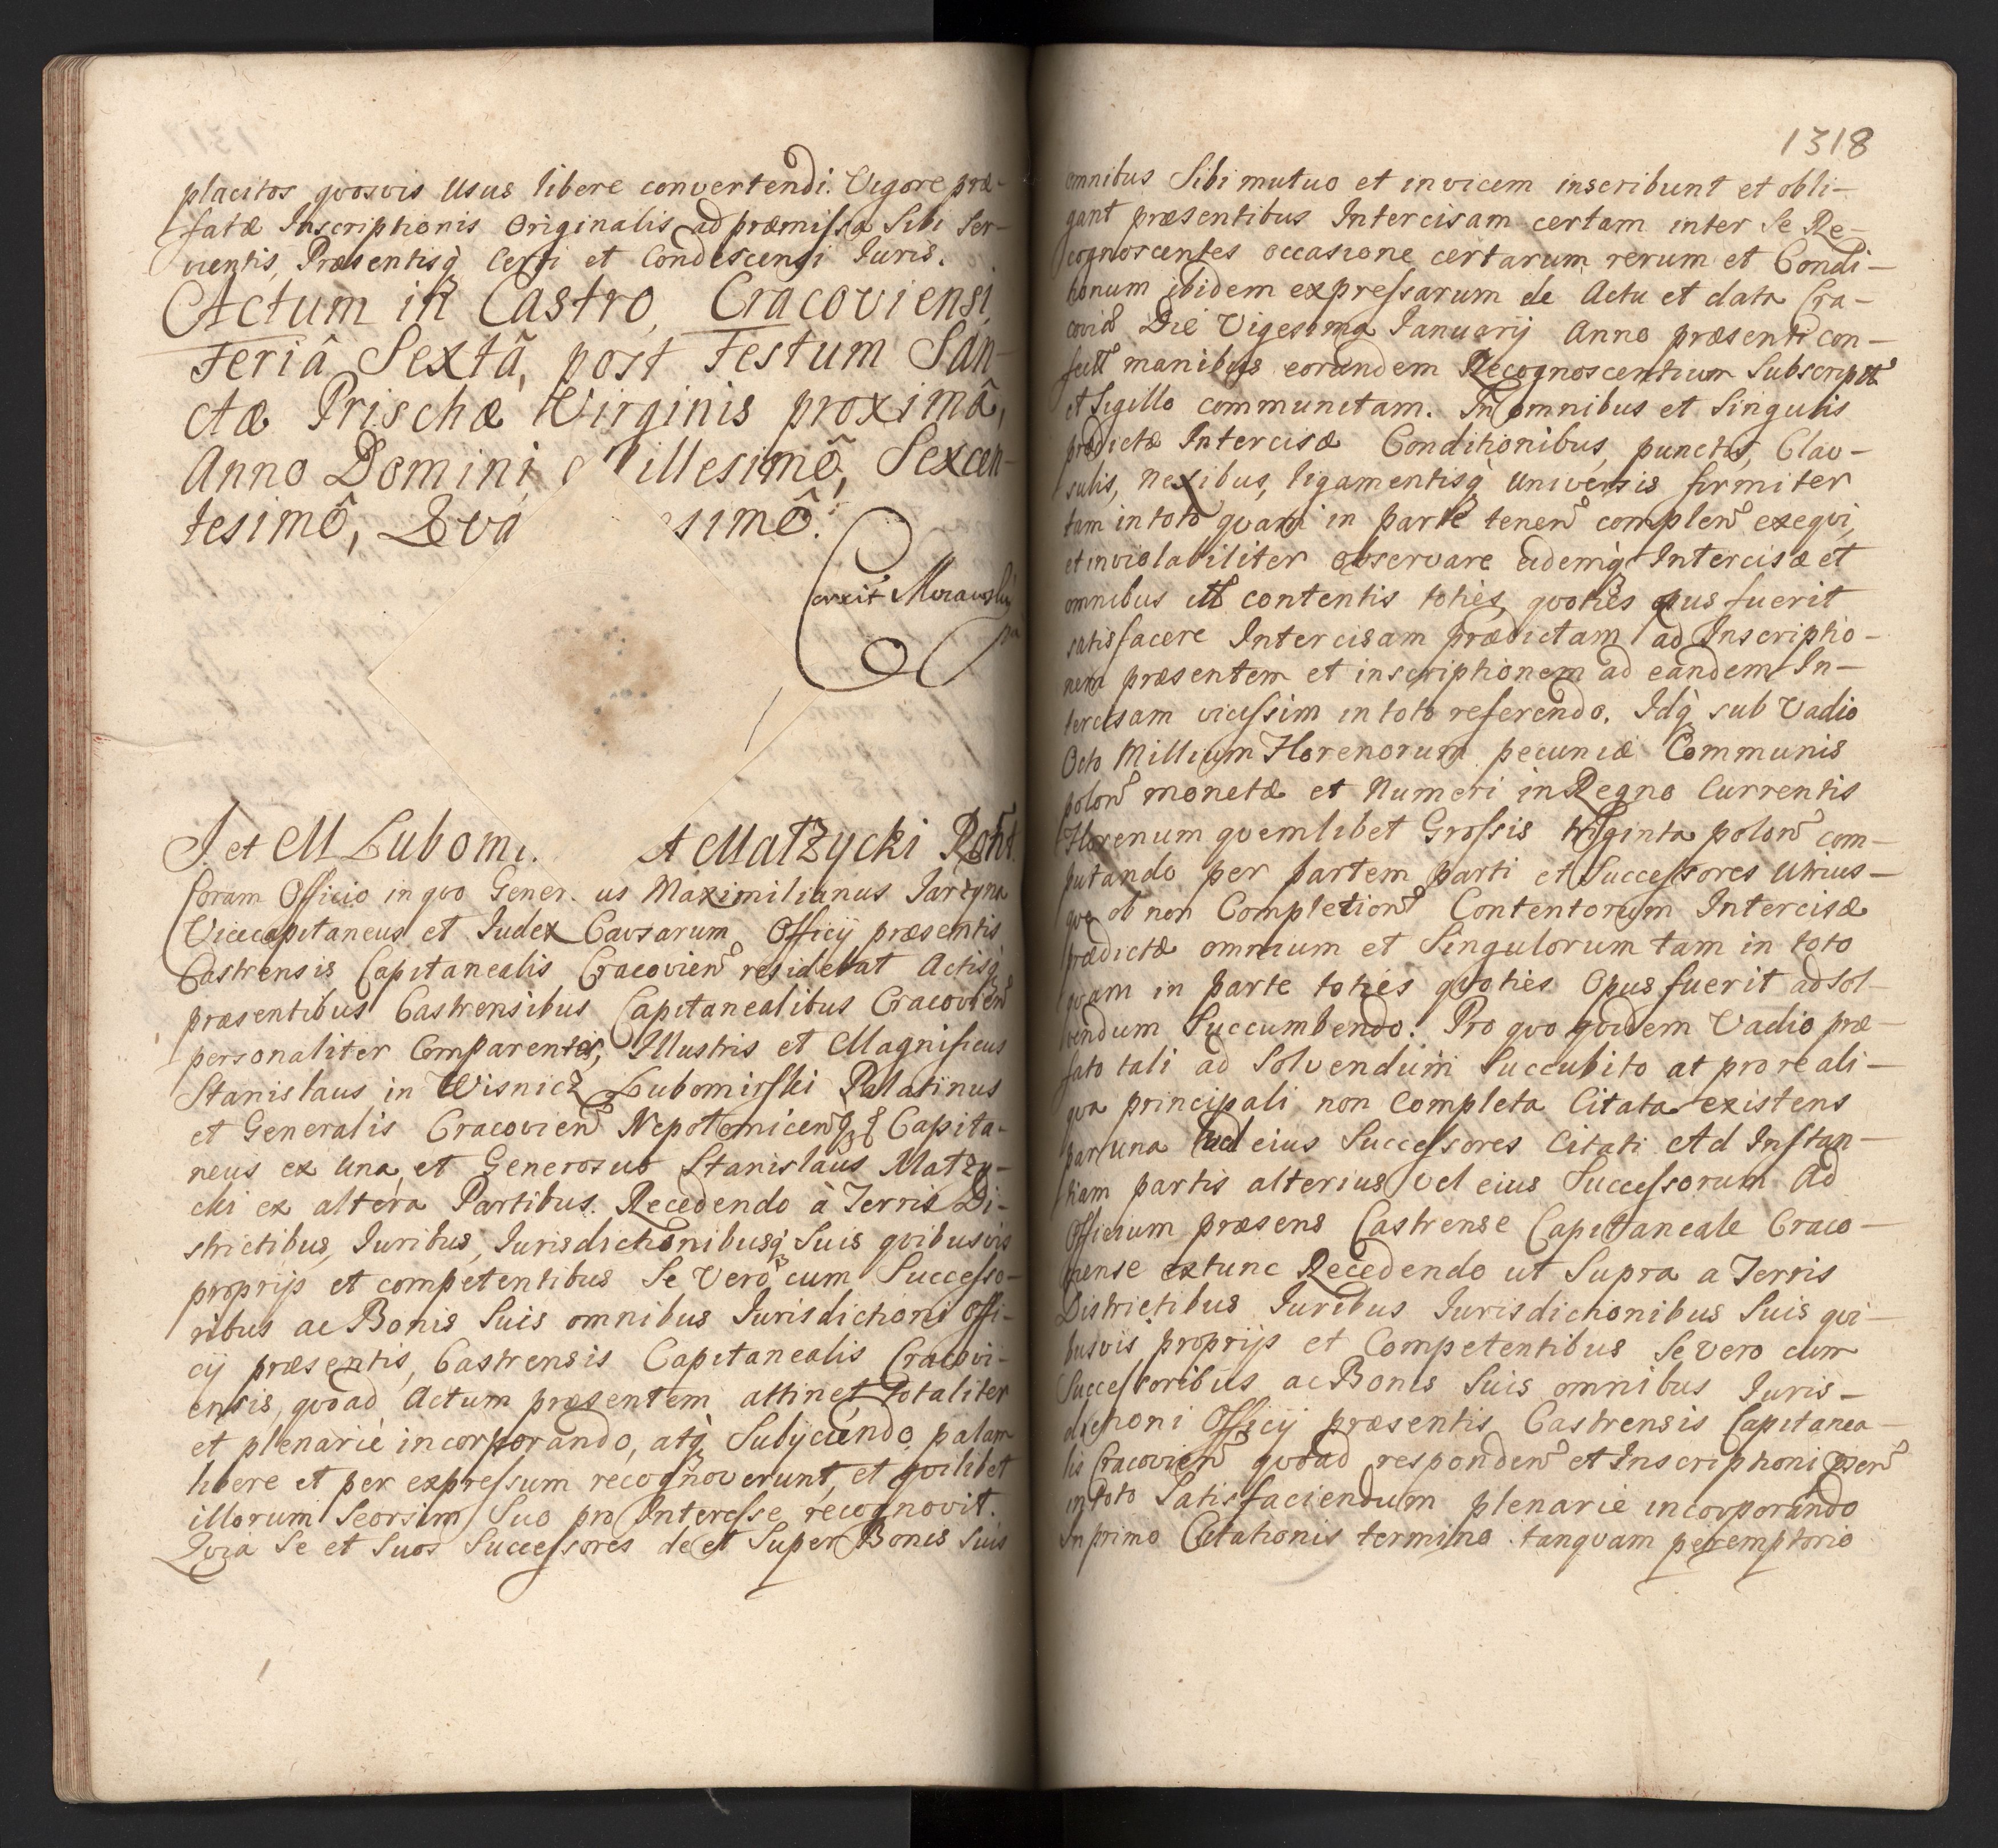 placitos quosvis Usus libere convertendi. Vigore præ-
fatæ Inscriptionis Originalis ad præmissa Sibi Ser-
vientis, Præsentisq Cessi et Condescensi Iuris.
Actum in Castro Cracoviensi
Feriâ Sextâ, post Festum San-
ctæ Prischæ Virginis proximâ,
Anno Domini Millesimô, Sexcen-
tesimô, esimô.
J. et M Lubomi. A Matzycki
Coram Officio in quo Gener. us Maximilianus Jarzyna
Vicecapitaneus et Iudex Causarum Officij præsentis
Castrensis Capitanealis Cracovien residebat Actisq
præsentibus Castrensibus Capitanealibus Cracovien
personaliter Comparentes, Illustris et Magnificus
Stanislaus in Wisnicz Lubomirski Palatinus
et Generalis Cracovien Capita-
neus ex una, et Generosus Stanislaus Matzy-
cki ex altera Partibus. Recedendo à Terris Di-
strictibus, Iuribus, Iurisdictionibusq Suis quibusvis
proprijs et competentibus Se Vero cum Successo-
ribus ac Bonis Suis omnibus Iurisdictioni Offi-
cij præsentis, Castrensis Capitanealis Cracovi-
ensis, quoad Actum præsentem attinet, totaliter
et plenariè incorporando, atq Subijciendo, palam
libere et per expressum recognoverunt, et quilibet
illorum Seorsim Suo pro Interesse recognovit.
Quia Se et Suos Successores de et Super Bonis Suis
1318
omnibus Sibi mutuo et invicem inscribunt et obli-
gant præsentibus Intercisam certam inter Se Re-
cognoscentes occasione certarum rerum et Condi-
tionum ibidem expressarum de Actu et data Cra-
coviæ Die Vigesima Ianuarij Anno præsenti con-
manibus eorundem Recognoscentium Subscript
et Sigillo communitam. In omnibus et Singulis
prædictæ Intercisæ Conditionibus, punctis, Clau-
sulis, Nexibus, ligamentisq Universis firmiter
tam in toto quam in parte tenen complen exequi,
et inviolabiliter observare eidemq Intercisæ et
omnibus contentis toties, quoties opus fuerit
satisfacere Intercisam prædictam ad Inscriptio-
nem præsentem et inscriptionem ad eandem In-
tercisam vicissim in toto referendo. Idq sub Vadio
Octo Millium Florenorum pecuniæ Communis
polon monetæ et Numeri in Regno Currentis
Florenum quemlibet Grossis triginta polon com-
putando per partem parti et Successores Utrius-
que ob non Completion Contentorum Intercisæ
prædictæ omnium et Singulorum tam in toto
quam in parte toties quoties Opus fuerit ad Sol-
vendum Succumbendo. Pro quo quidem Vadio præ-
fato tali ad Solvendum Succubito at pro re ali-
qua principali non Completa Citata existens
pars una vel eius Successores Citati Ad Instan-
tiam partis alterius vel eius Successorum Ad
Officium præsens Castrense Capitaneale Craco-
viense extunc Recedendo ut Supra a Terris
Districtibus Iuribus Iurisdictionibus Suis qui-
busvis proprijs et Competentibus Se vero cum
Successoribus ac Bonis Suis omnibus Iuris-
dictioni Officij præsentis Castrensis Capitanea-
lis Cracovien quoad responden et Inscriptioni
in toto Satisfaciendum plenarie incorporando
In primo Citationis termino tanquam peremptorio